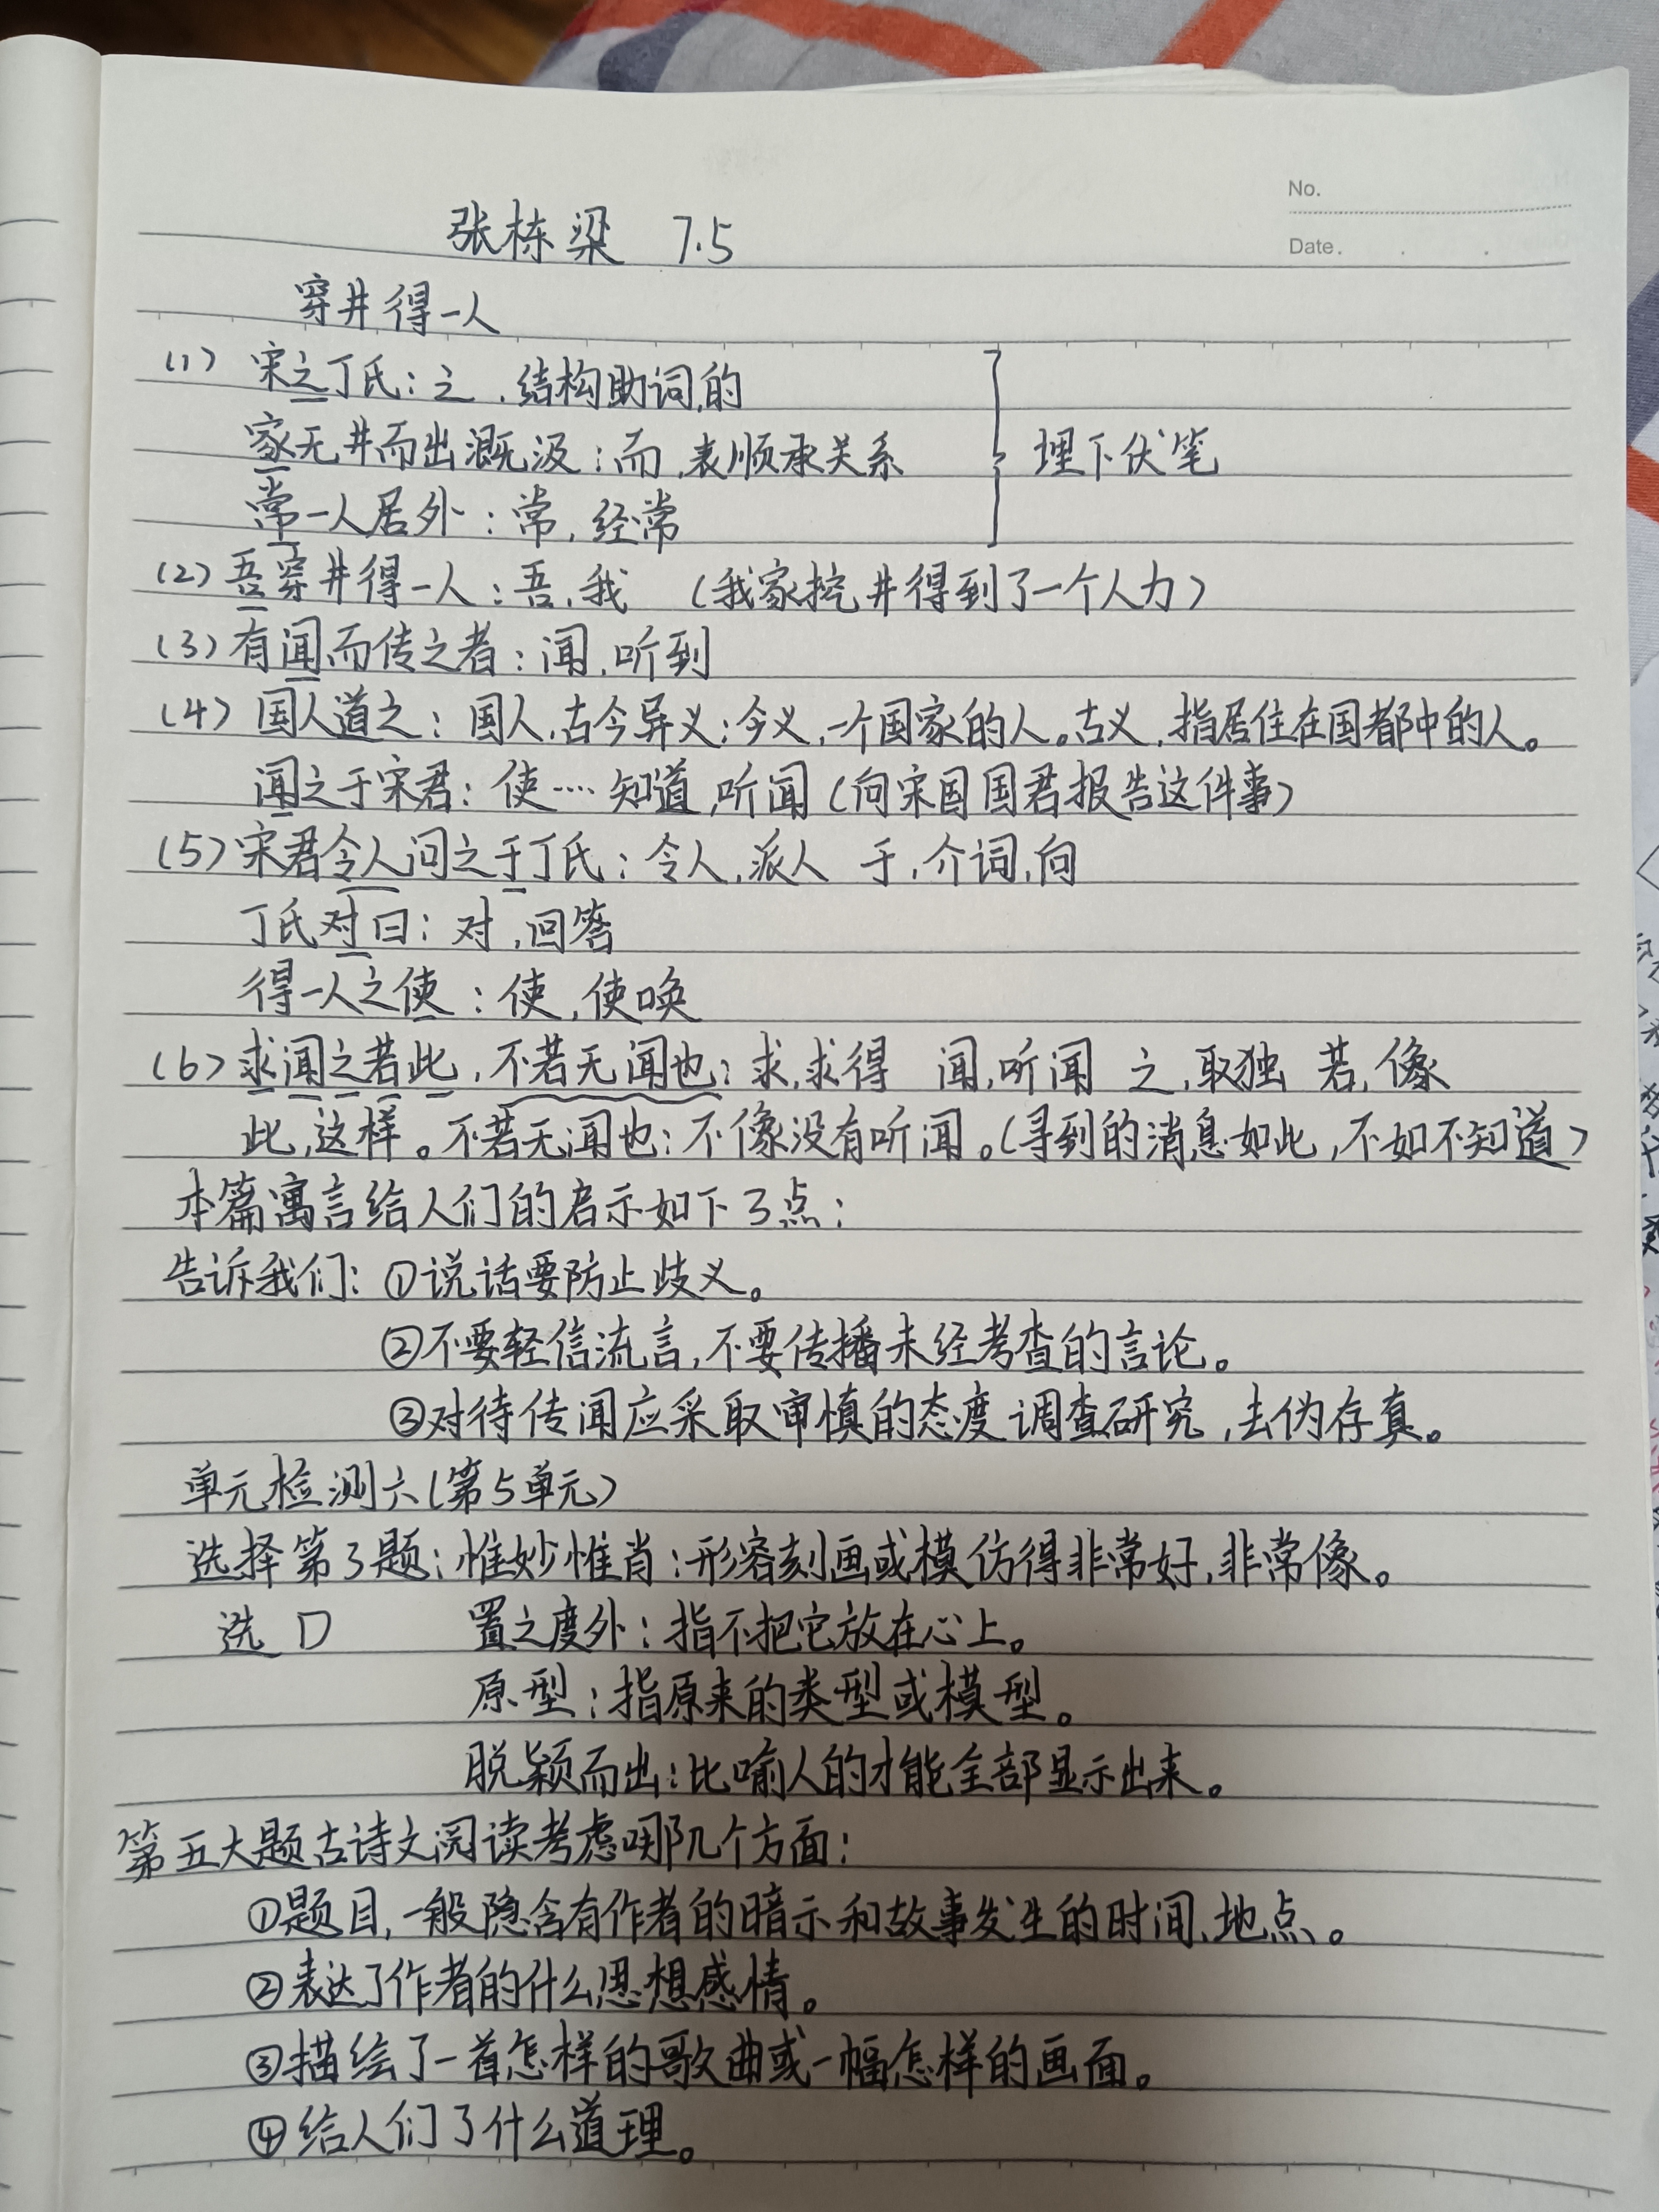 No.
Date.
张栋梁 7.5
穿井得一人
(1) 宋之丁氏：之，结构助词，的
家无井而出溉汲：而，表顺承关系 埋下伏笔
常一人居外：常，经常
(2) 吾穿井得一人：吾，我 (我家挖井得到了一个人力)
(3) 有闻而传之者：闻，听到
(4) 国人道之：国人，古今异义：今义，一个国家的人。古义，指居住在国都中的人。
闻之于宋君：使…知道，听闻(向宋国国君报告这件事)
(5) 宋君令人问之于丁氏：令人，派人 于，介词，向
丁氏对曰：对，回答
得一人之使：使，使唤
(6) 求闻之若此，不若无闻也：求，求得 闻，听闻 之，取独 若，像
此，这样。不若无闻也：不像没有听闻。(寻到的消息如此，不如不知道)
本篇寓言给人们的启示如下3点：
告诉我们：①说话要防止歧义。
②不要轻信流言，不要传播未经考查的言论。
③对待传闻应采取审慎的态度调查研究，去伪存真。
单元检测六(第5单元)
选择第3题：惟妙惟肖：形容刻画或模仿得非常好，非常像。
选 D 置之度外：指不把它放在心上。
原型：指原来的类型或模型。
脱颖而出：比喻人的才能全部显示出来。
第五大题古诗文阅读考虑哪几个方面：
①题目，一般隐含有作者的暗示和故事发生的时间、地点。
②表达了作者的什么思想感情。
③描绘了一首怎样的歌曲或一幅怎样的画面。
④给人们了什么道理。